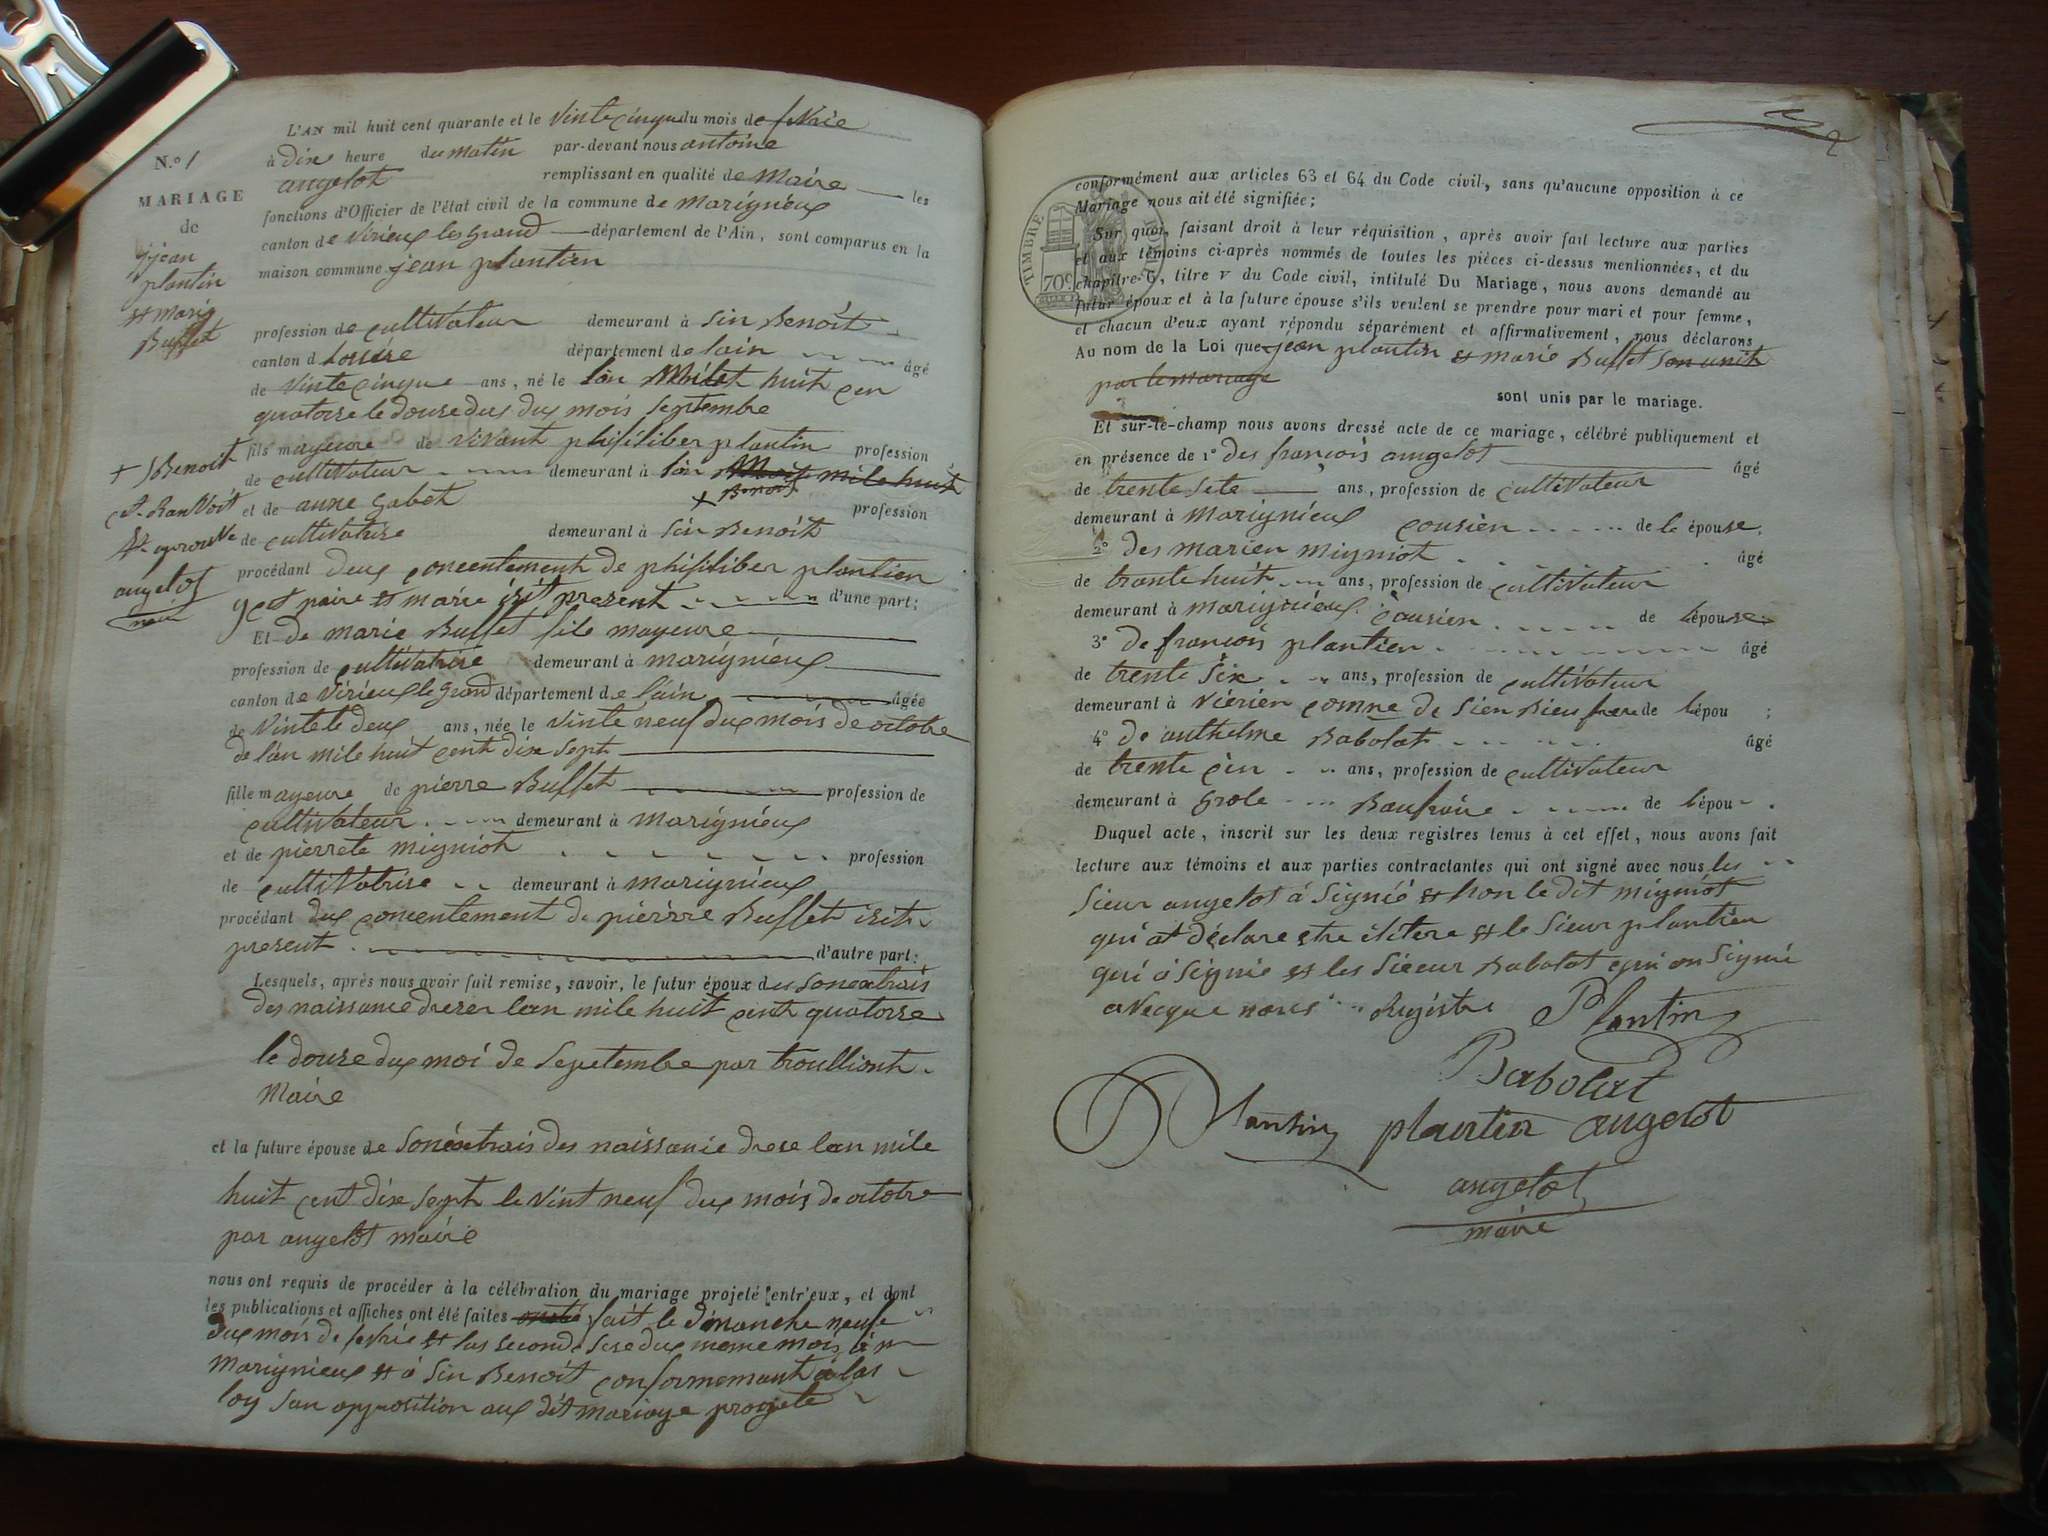 L'AN mil huit cent quarante et le vinte cinque du mois de fevrie
N.º 1
à dixe heure du matin par-devant nous antoine
angelot remplissant en qualité de Maire les
MARIAGE
fonctions d'Officier de l'état civil de la commune de marignieux
de
canton de virieux le grand département de l'Ain, sont comparus en la
maison commune jean plantien
jean
plantin
et marie
Buffet
profession de cultivateur demeurant à sin Benoit
canton d département de lain âgé
de vinte cinque ans, né le lan huit cen
quatorse le douse dus dux mois septembre
fils mayeure de vivant philiber plantin profession
de cultivateur demeurant à lan mile huit
+ Benoit
et de anne gabet profession
de cultivatrise demeurant à sin Benoit
+ sBenoit
angelot
procédant deux concentement de philiber plantien
paire et marie isit present d'une part;
Et de marie Buffet file mayeure
profession de cultivatrise demeurant à marignieux
canton de virieux le grand département de lain âgée
de vinte deux ans, née le vinte neuf dux mois de octobre
de lan mile huit cent dixe sept
fille mayeure de pierre Buffet profession de
cultivateur demeurant à marignieux
et de pierrete migniot profession
de cultivatrise demeurant à marignieux
procédant dux concentement de pierre Buffet isit
present d'autre part;
Lesquels, après nous avoir fait remise, savoir, le futur époux de son extrais
des naissance lan mile huit cent quatorse
le douse dux moi de sepetembre par troulliont
Maire
et la future épouse de son extrais des naissance drese lan mile
huit cent dixe sept le vint neuf dux mois de octobre
par angelot maire
nous ont requis de procéder à la célébration du mariage projeté entr'eux, et dont
les publications et affiches ont été faites fait le dimanche neufe
dux mois de fevrie et las seconde sese dux meme mois à m
marignieux et à sin Benoit conformemant à las
loy san opposition aux dit mariage progete
conformément aux articles 63 et 64 du Code civil, sans qu'aucune opposition à ce
Mariage nous ait été signifiée;
TIMBRE ROYAL
70c
Sur quoi, faisant droit à leur réquisition, après avoir fait lecture aux parties
et aux témoins ci-après nommés de toutes les pièces ci-dessus mentionnées, et du
chapitre 6, titre v du Code civil, intitulé Du Mariage, nous avons demandé au
futur époux et à la future épouse s'ils veulent se prendre pour mari et pour femme,
et chacun d'eux ayant répondu séparément et affirmativement, nous déclarons
Au nom de la Loi que jean plantin et marie Buffet son unit
par le mariage
sont unis par le mariage.
Et sur-le-champ nous avons dressé acte de ce mariage, célébré publiquement et
en présence de 1º des françois angelot âgé
de trente sete ans, profession de cultivateur
demeurant à Marignieux cousien de le épouse.
2º des marien migniot âgé
de trante huit ans, profession de cultivateur
demeurant à marignieux cousien de lépouse
3º de françois plantien âgé
de trente six ans, profession de cultivateur
demeurant à vierien comne de sien Bieu frere de lépou ;
4º de anthelme Babolat âgé
de trente cin ans, profession de cultivateur
demeurant à grole Baufraire de lépou .
Duquel acte, inscrit sur les deux registres tenus à cet effet, nous avons fait
lecture aux témoins et aux parties contractantes qui ont signé avec nous les
sieur angelot à signié et non le dit migniot
qui at déclare etre ilitere et le sieur plantien
qui à signie et les sieeur Babolat qui on signié
avecque nous Registre Plantin
Babolat
Plantin plantin angelot
angelot
maire